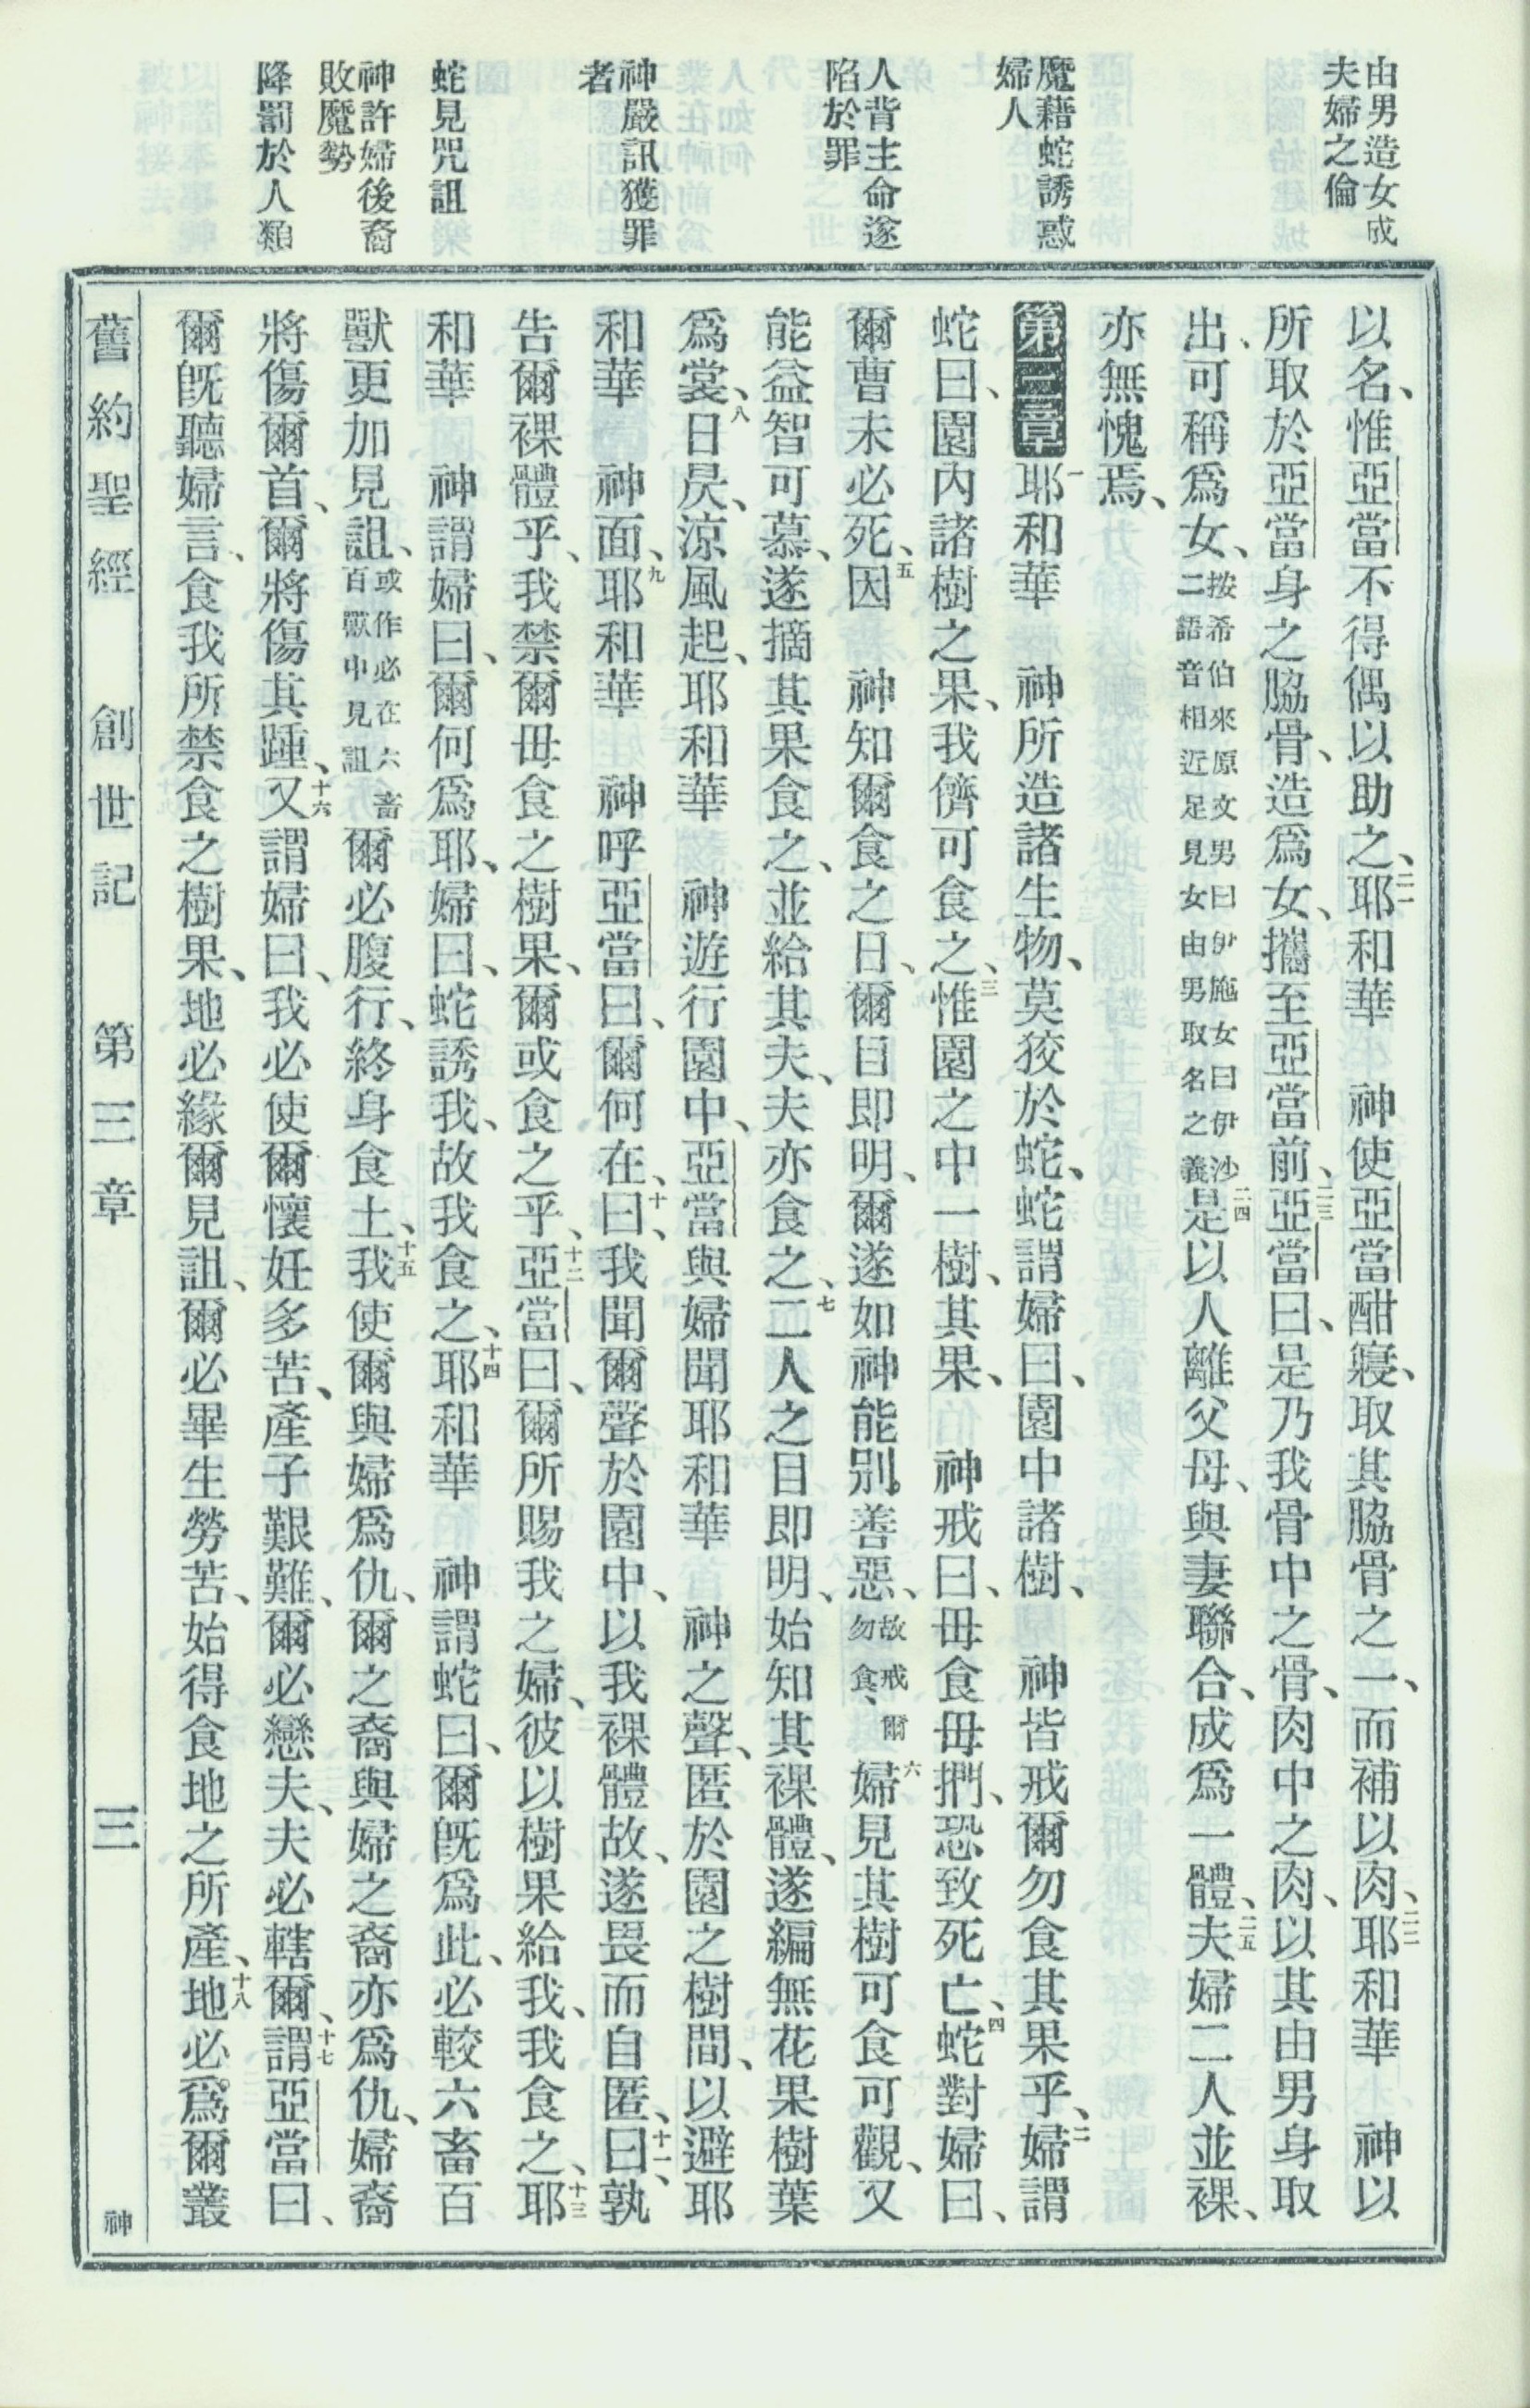 由男造女成
夫婦之倫
魔藉蛇誘惑
婦人
人背主命遂
陷於罪
神嚴訊獲罪
者
蛇見咒詛
神許婦後裔
敗魔勢
降罰於人類
以名、惟亞當不得偶以助之、二一耶和華　神使亞當酣寢、取其脇骨之一、而補以肉、二二耶和華　神以
所取於亞當身之脇骨、造爲女、攜至亞當前、二三亞當曰、是乃我骨中之骨、肉中之肉、以其由男身取
出、可稱爲女、按希伯來原文男曰伊施女曰伊沙二語音相近足見女由男取名之義二四是以人離父母、與妻聯合、成爲一體、二五夫婦二人並裸、
亦無愧焉、
第三章一耶和華　神所造諸生物、莫狡於蛇、蛇謂婦曰、園中諸樹、　神皆戒爾勿食其果乎、二婦謂
蛇曰、園內諸樹之果、我儕可食之、三惟園之中一樹、其果、　神戒曰、毋食毋捫、恐致死亡、四蛇對婦曰、
爾曹未必死、五因　神知爾食之日、爾目即明、爾遂如神能別善惡、故戒爾勿食、六婦見其樹可食可觀、又
能益智可慕、遂摘其果食之、並給其夫、夫亦食之、七二人之目即明、始知其裸體、遂編無花果樹葉
爲裳、八日昃、涼風起、耶和華　神遊行園中、亞當與婦聞耶和華　神之聲、匿於園之樹間、以避耶
和華　神面、九耶和華　神呼亞當曰、爾何在、十曰、我聞爾聲於園中、以我裸體故、遂畏而自匿、十一曰、孰
告爾裸體乎、我禁爾毋食之樹果、爾或食之乎、十二亞當曰、爾所賜我之婦、彼以樹果給我、我食之、十三耶
和華　神謂婦曰、爾何爲耶、婦曰、蛇誘我、故我食之、十四耶和華　神謂蛇曰、爾既爲此、必較六畜百
獸更加見詛、或作必在六畜百獸中見詛爾必腹行、終身食土、十五我使爾與婦爲仇、爾之裔與婦之裔亦爲仇、婦裔
將傷爾首、爾將傷其踵、十六又謂婦曰、我必使爾懷妊多苦、產子艱難、爾必戀夫、夫必轄爾、十七謂亞當曰、
爾既聽婦言、食我所禁食之樹果、地必緣爾見詛、爾必畢生勞苦、始得食地之所產、十八地必爲爾叢
舊約聖經　創世記　第三章　三　神